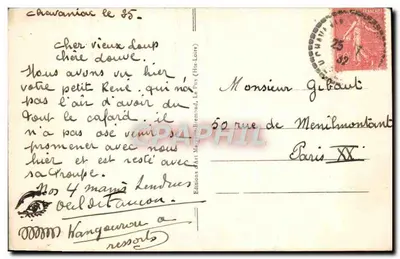 Chavaniac le 25.
Cher vieux Loup
chère douve.
Nous avons vu hier
votre petit René, qui n'a
pas l'air d'avoir du
tout le cafard. il
n'a pas osé venir se
promener avec nous
hier et est resté avec
sa troupe.
Nos 4 mains tendres
Oeil de Faucon
Kangourou a
ressorts
Monsieur Gibaut
50 rue de Menilmontant
Paris XX
25
7
32